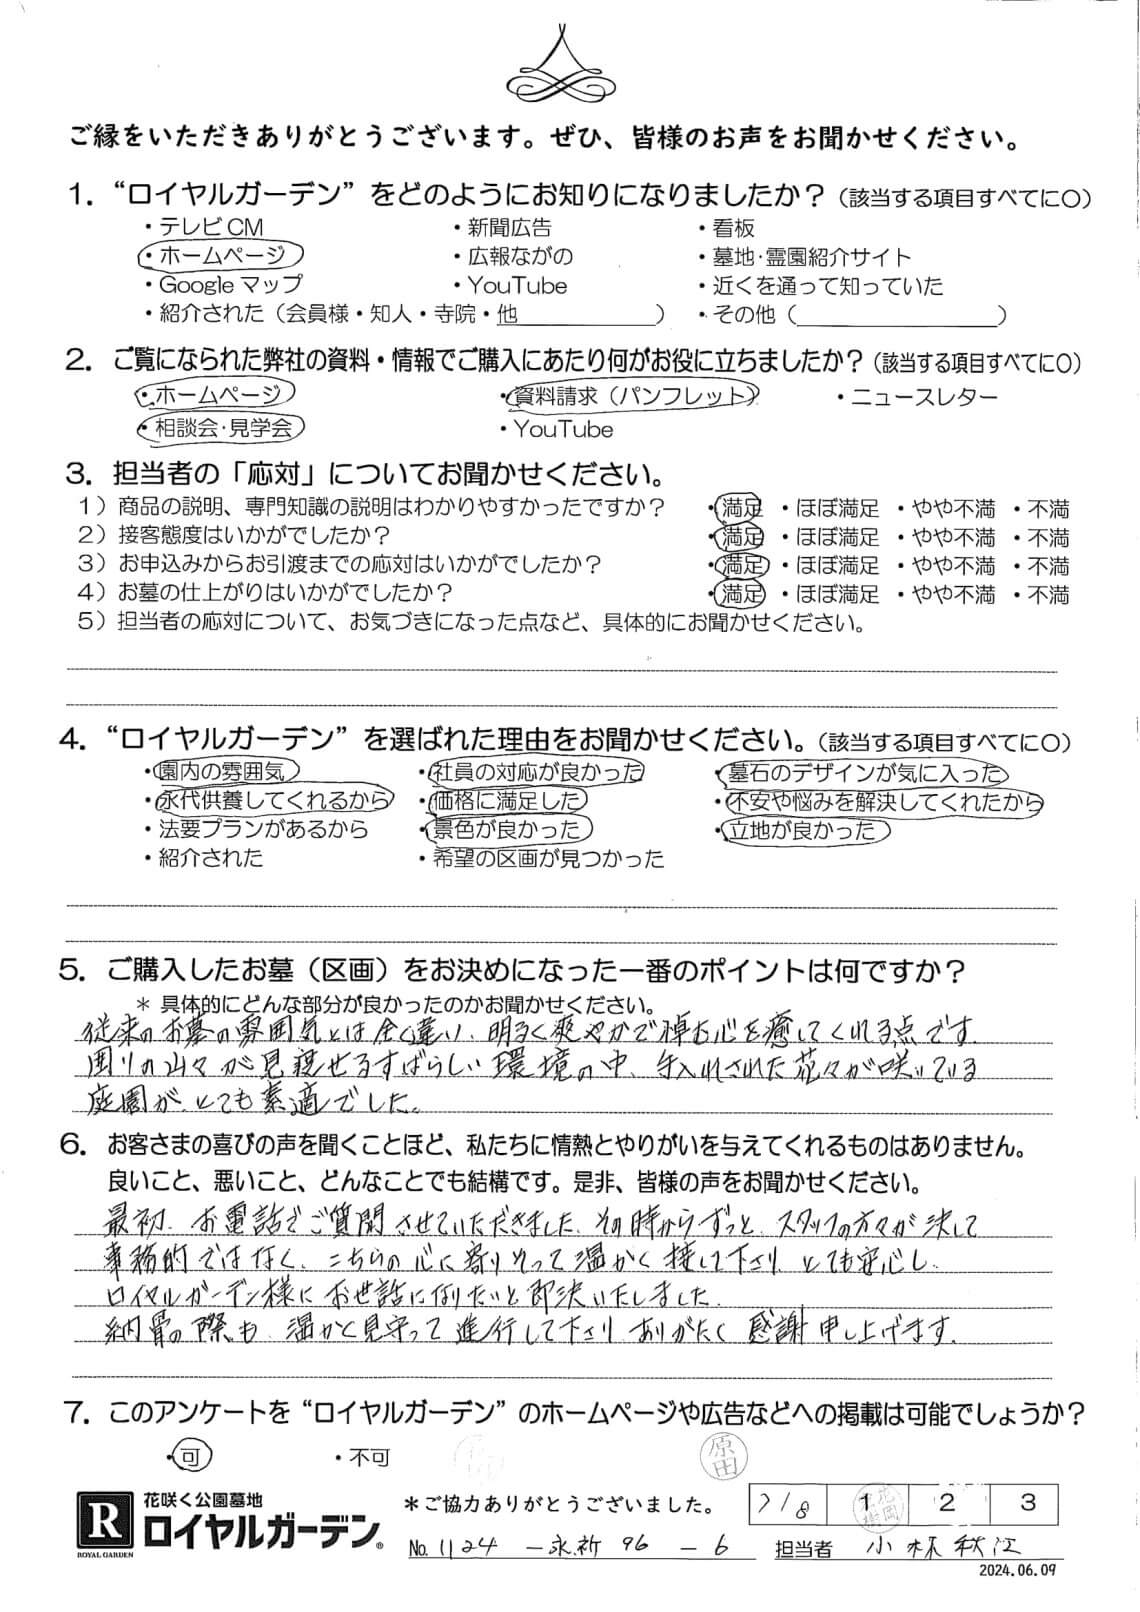 ご縁をいただきありがとうございます。ぜひ、皆様のお声をお聞かせください。
1. “ロイヤルガーデン”をどのようにお知りになりましたか？（該当する項目すべてに〇）
・テレビCM ・新聞広告 ・看板
・ホームページ ・広報ながの ・墓地・霊園紹介サイト
・Googleマップ ・YouTube ・近くを通って知っていた
・紹介された（会員様・知人・寺院・他 ） ・その他（ ）
2. ご覧になられた弊社の資料・情報でご購入にあたり何がお役に立ちましたか？（該当する項目すべてに〇）
・ホームページ ・資料請求（パンフレット） ・ニュースレター
・相談会・見学会 ・YouTube
3. 担当者の「応対」についてお聞かせください。
1）商品の説明、専門知識の説明はわかりやすかったですか？ ・満足 ・ほぼ満足 ・やや不満 ・不満
2）接客態度はいかがでしたか？ ・満足 ・ほぼ満足 ・やや不満 ・不満
3）お申込みからお引渡までの応対はいかがでしたか？ ・満足 ・ほぼ満足 ・やや不満 ・不満
4）お墓の仕上がりはいかがでしたか？ ・満足 ・ほぼ満足 ・やや不満 ・不満
5）担当者の応対について、お気づきになった点など、具体的にお聞かせください。
4. “ロイヤルガーデン”を選ばれた理由をお聞かせください。（該当する項目すべてに〇）
・園内の雰囲気 ・社員の対応が良かった ・墓石のデザインが気に入った
・永代供養してくれるから ・価格に満足した ・不安や悩みを解決してくれたから
・法要プランがあるから ・景色が良かった ・立地が良かった
・紹介された ・希望の区画が見つかった
5. ご購入したお墓（区画）をお決めになった一番のポイントは何ですか？
＊ 具体的にどんな部分が良かったのかお聞かせください。
従来のお墓の雰囲気とは全く違い、明るく爽やかで悼む心を癒してくれる点です。
周りの山々が見渡せるすばらしい環境の中、手入れされた花々が咲いている
庭園が、とても素適でした。
6. お客さまの喜びの声を聞くことほど、私たちに情熱とやりがいを与えてくれるものはありません。
良いこと、悪いこと、どんなことでも結構です。是非、皆様の声をお聞かせください。
最初、お電話でご質問させていただきました。その時からずっと、スタッフの方々が決して
事務的ではなく、こちらの心に寄りそって温かく接して下さり とても安心し、
ロイヤルガーデン様にお世話になりたいと即決いたしました。
納骨の際も、温かく見守って進行して下さり ありがたく 感謝申し上げます。
7. このアンケートを“ロイヤルガーデン”のホームページや広告などへの掲載は可能でしょうか？
・可 ・不可
原田
R 花咲く公園墓地
ROYAL GARDEN ロイヤルガーデン®
＊ご協力ありがとうございました。 7/8 1 2 3
No. 1124 －永祈 96 － 6 担当者 小林秋江
2024.06.09